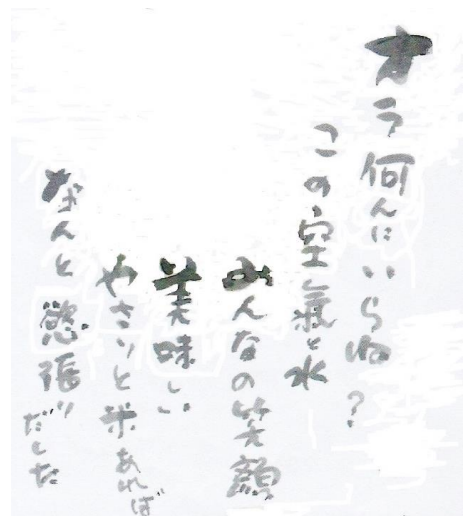 オラ何んにいらね?
この空氣と水
みんなの笑顔
美味しい
やさいと米あれば
なんと慾張りだもな